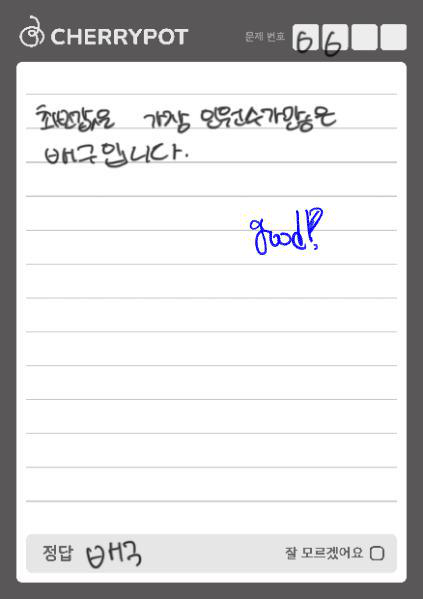 CHERRYPOT
문제 번호 66
최빈값은 가장 인원수가많은
배구입니다.
good!
정답 배구
잘 모르겠어요